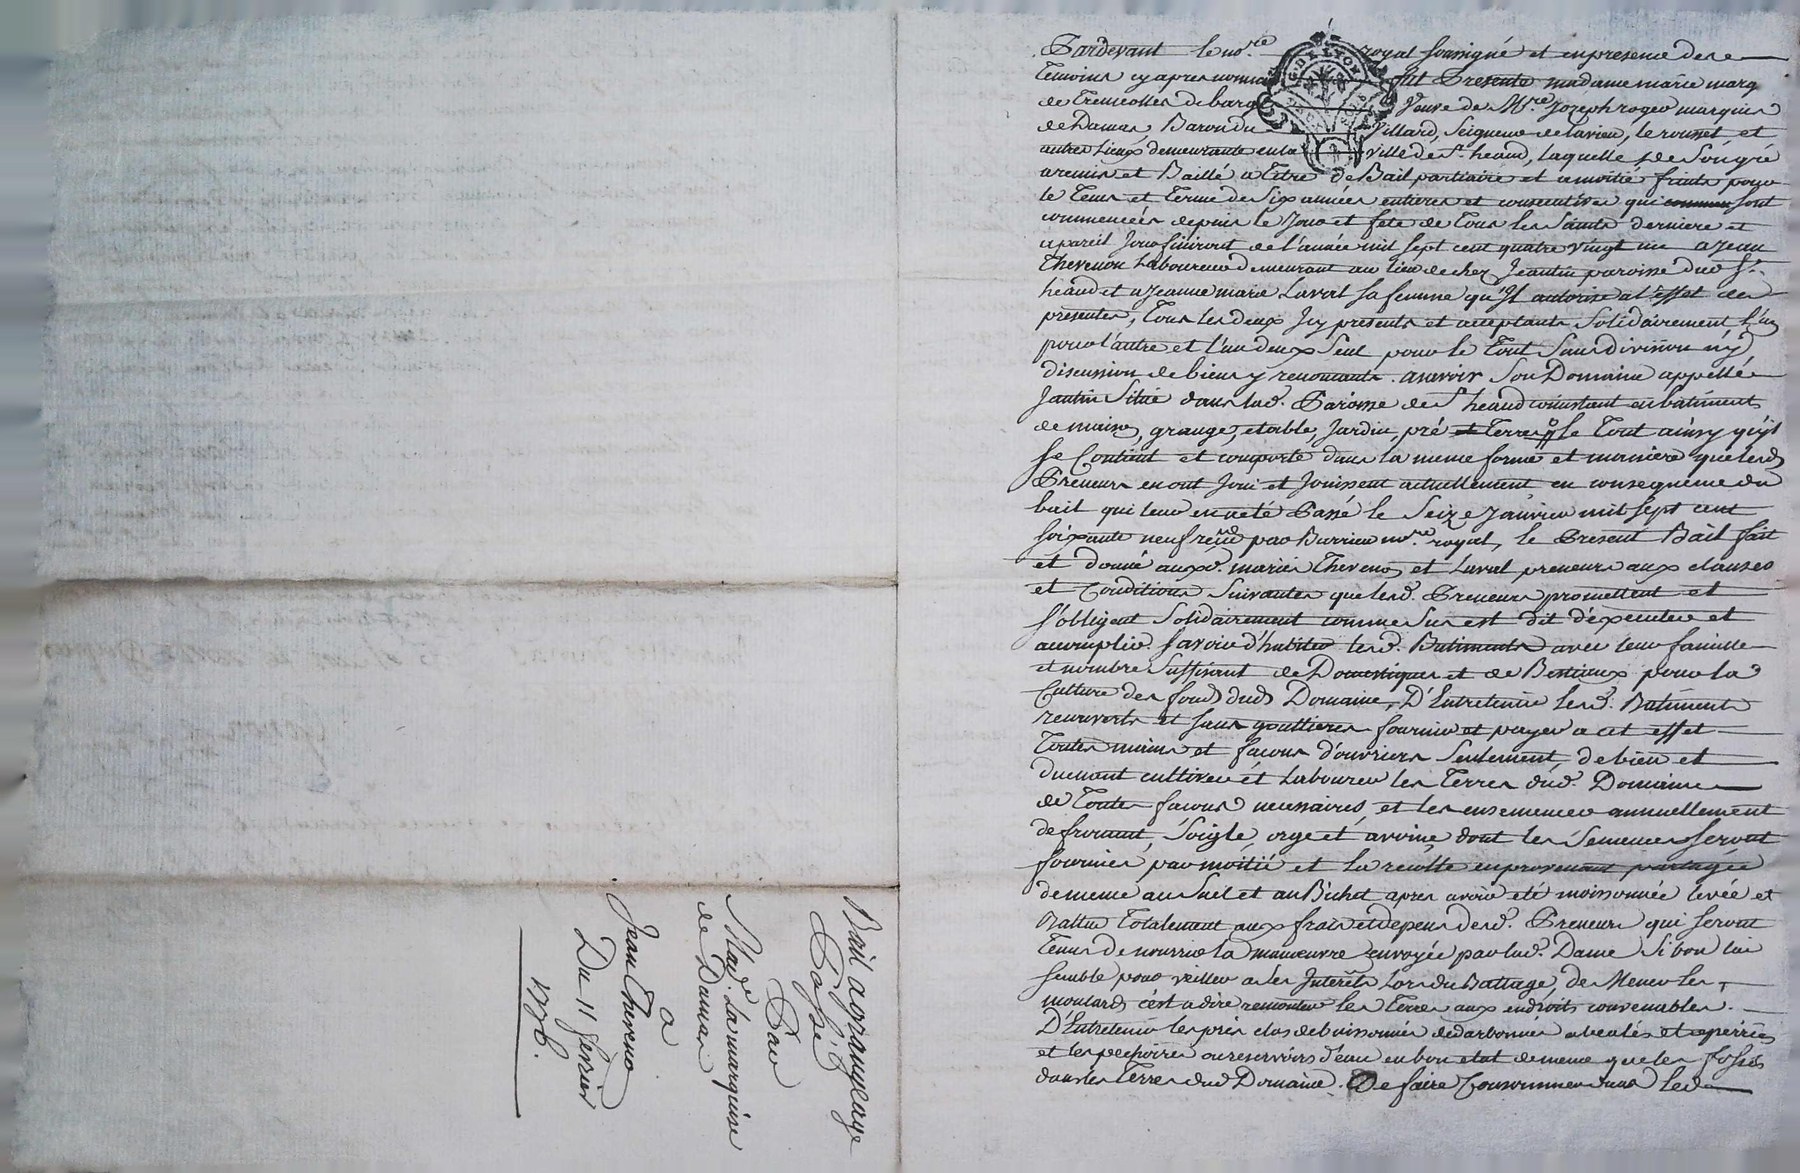 Pardevant le no.re royal soussigné et en presence des
Temoins cy apres nommés fut Presente madame marie marg
de Tremeolles de barg Veuve de M.re Joseph roger marquis
de Damas, Baron du Villard, Seigneur de lavieu, le rousset et
autres Lieux demeurante en la ville de S.t heand, laquelle de Son gré
a remis et Baillé a Titre de Bail partiaire et a moitié fruits pour
le Tems et Terme de Six années entieres et consecutives qui sont
commencées depuis le Jour et fete de Tous les Saints derniere et
a pareil Jour finiront de l'année mil sept cent quatre vingt un a Jean
Thevenon Laboureur demeurant au lieu de chez Jeantin paroisse dud S.t
heand et a Jeanne marie Laval sa femme qu'il autorise a l'effet des
presentes, Tous les deux Icy presents et acceptants Solidairement l'un
pour l'autre et l'un deux Seul pour le Tout Sans division ny
discussion de biens y renonçants. ascavoir Son Domaine appellé
Jantin Situé dans lad. Paroisse de S.t heand consistant en batiments
de maitre, grange, etable, Jardin, pré Terre le Tout ainsy qu'il
se Contient et comporte dans la meme forme et maniere que lesd
Preneurs en ont Joui et Jouissent actuellement en consequence du
bail qui leur en a eté Passé le Seize Janvier mil sept cent
soixante neuf reçu par Barrieu no.re royal, le Present Bail fait
et donné auxd. mariés Theveno, et Laval preneurs aux clauses
et Conditions Suivantes que lesd. Preneurs promettent et
s'obligent Solidairement comme Sus est dit d'éxecuter et
accomplir. Savoir d'habiter lesd. Batiments avec leur famille
et nombre Suffisant de Domestiques et de Bestiaux pour la
Culture des fonds dud Domaine, D'Entretenir lesd. Batiments
recouverts et sans gouttieres fournir et payer a cet effet
Toutes mains et façons d'ouvriers Seulement, de bien et
duement cultiver et Labourer les Terres dud. Domaine
de Toutes façons necessaires, et les ensemencer annuellement
de froment, Soigle, orge et avoine dont les Semences seront
fournies par moitié et la recolte en provenant partagée
de meme au Suel et au Bichet apres avoir eté moissonnée levée et
Battue Totalement aux frais et depens desd. Preneurs qui seront
Tenus de nourrir la manoeuvre envoyée par lad. Dame Si bon lui
semble pour veiller a Ses Interêts Lors du Battage, de Mener les
moutards c'est a dire remonter les Terres aux endroits convenables.
D'Entretenir les prés clos debuissonnés
et les pechoires ou reservoirs d'eau en bon etat de meme que les fossés
dans les Terres dud Domaine. De faire Consommer dans led
Bail a grangeage
Passé
Par
Mad.e La marquise
de Damas
a
Jean Theveno
Du 11 fevrier
1776.